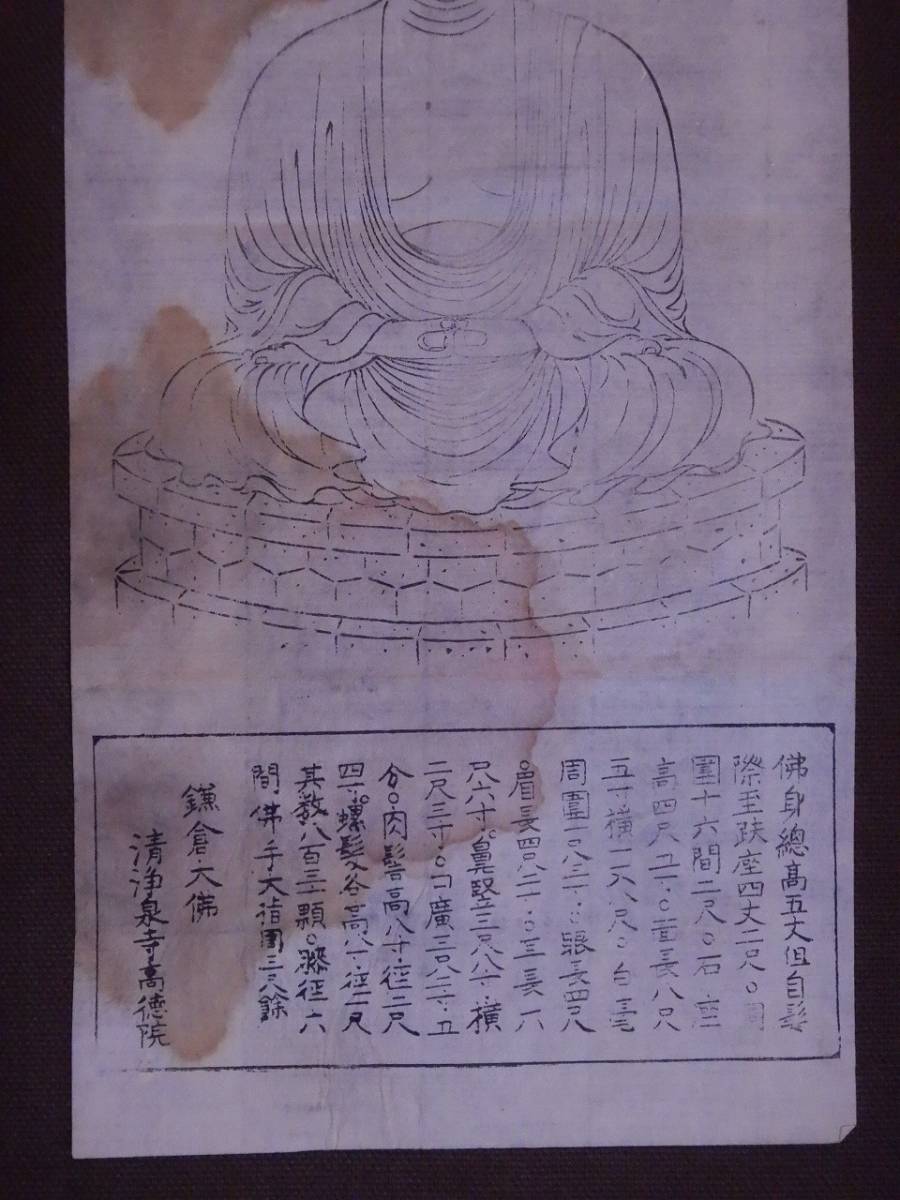 佛身總高五丈但自髪
際至趺座四丈二尺○周
圍十六間二尺○石座
高四尺五寸○面長八尺
五寸横一丈八尺○白毫
周圍一尺三寸○眼長四尺
○眉長四尺二寸○耳長六
尺六寸○鼻竪三尺八寸横
二尺三寸○口廣三尺二寸五
分○肉髻高八寸徑二尺
四寸○螺髪各高八寸徑一尺
其数八百三十顆○膝徑六
間 佛手大指圍三尺餘
鎌倉大佛
清浄泉寺高徳院